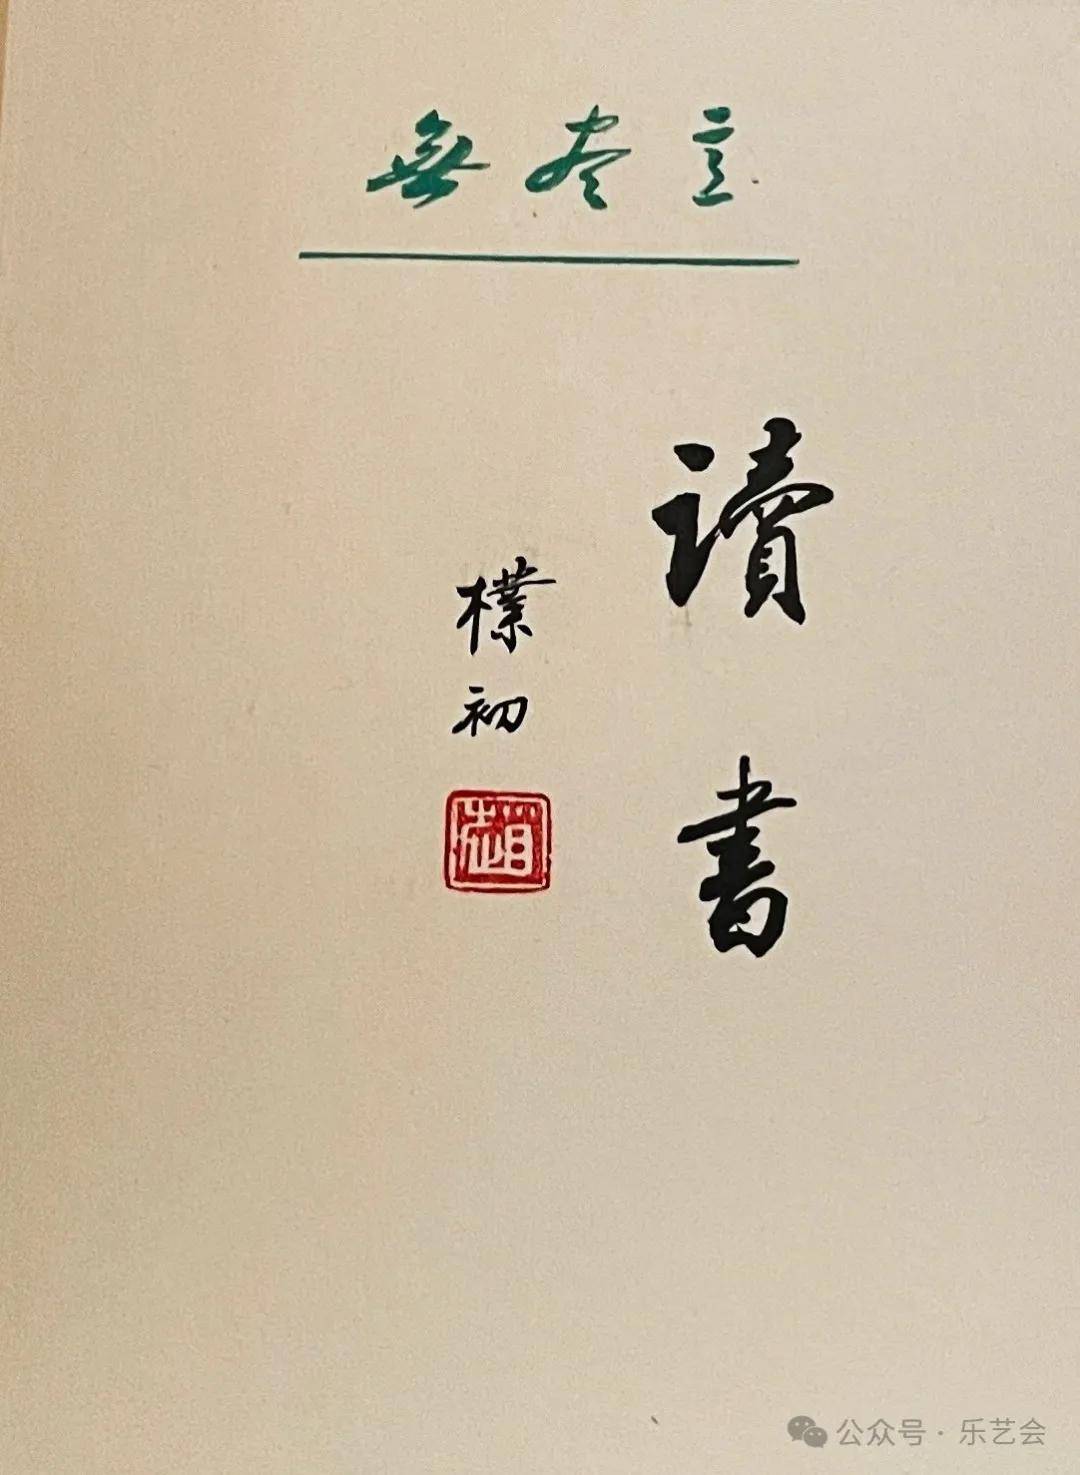 無尽意
讀書
樸初
趙
公众号·乐艺会